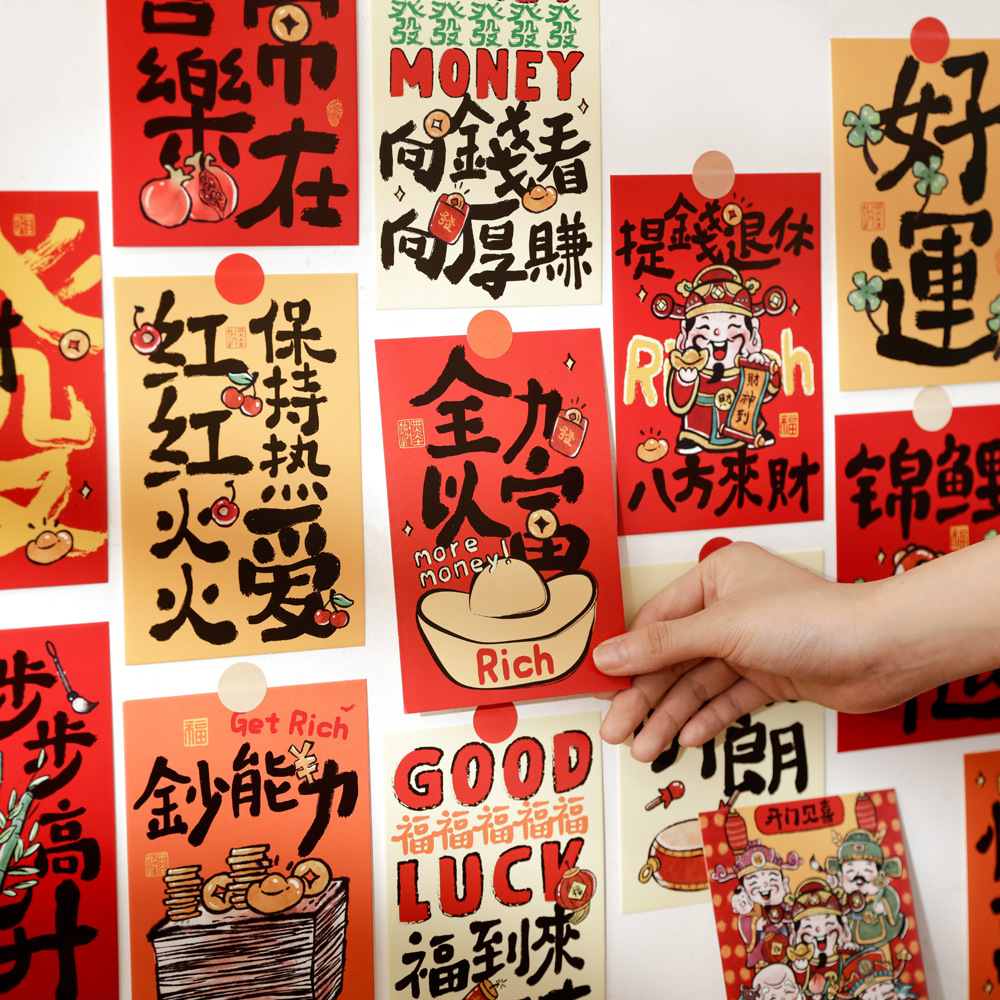 樂
常在
發發發發發
MONEY
向錢看
向厚賺
發
好運
提錢退休
Rich
財神到
財
福
八方來財
红红火火
保持热爱
全力
以富
發
more
money!
Rich
锦鲤
步步高升
福
Get Rich
鈔能力
GOOD
福福福福福
LUCK
福到來
朗
开门见喜